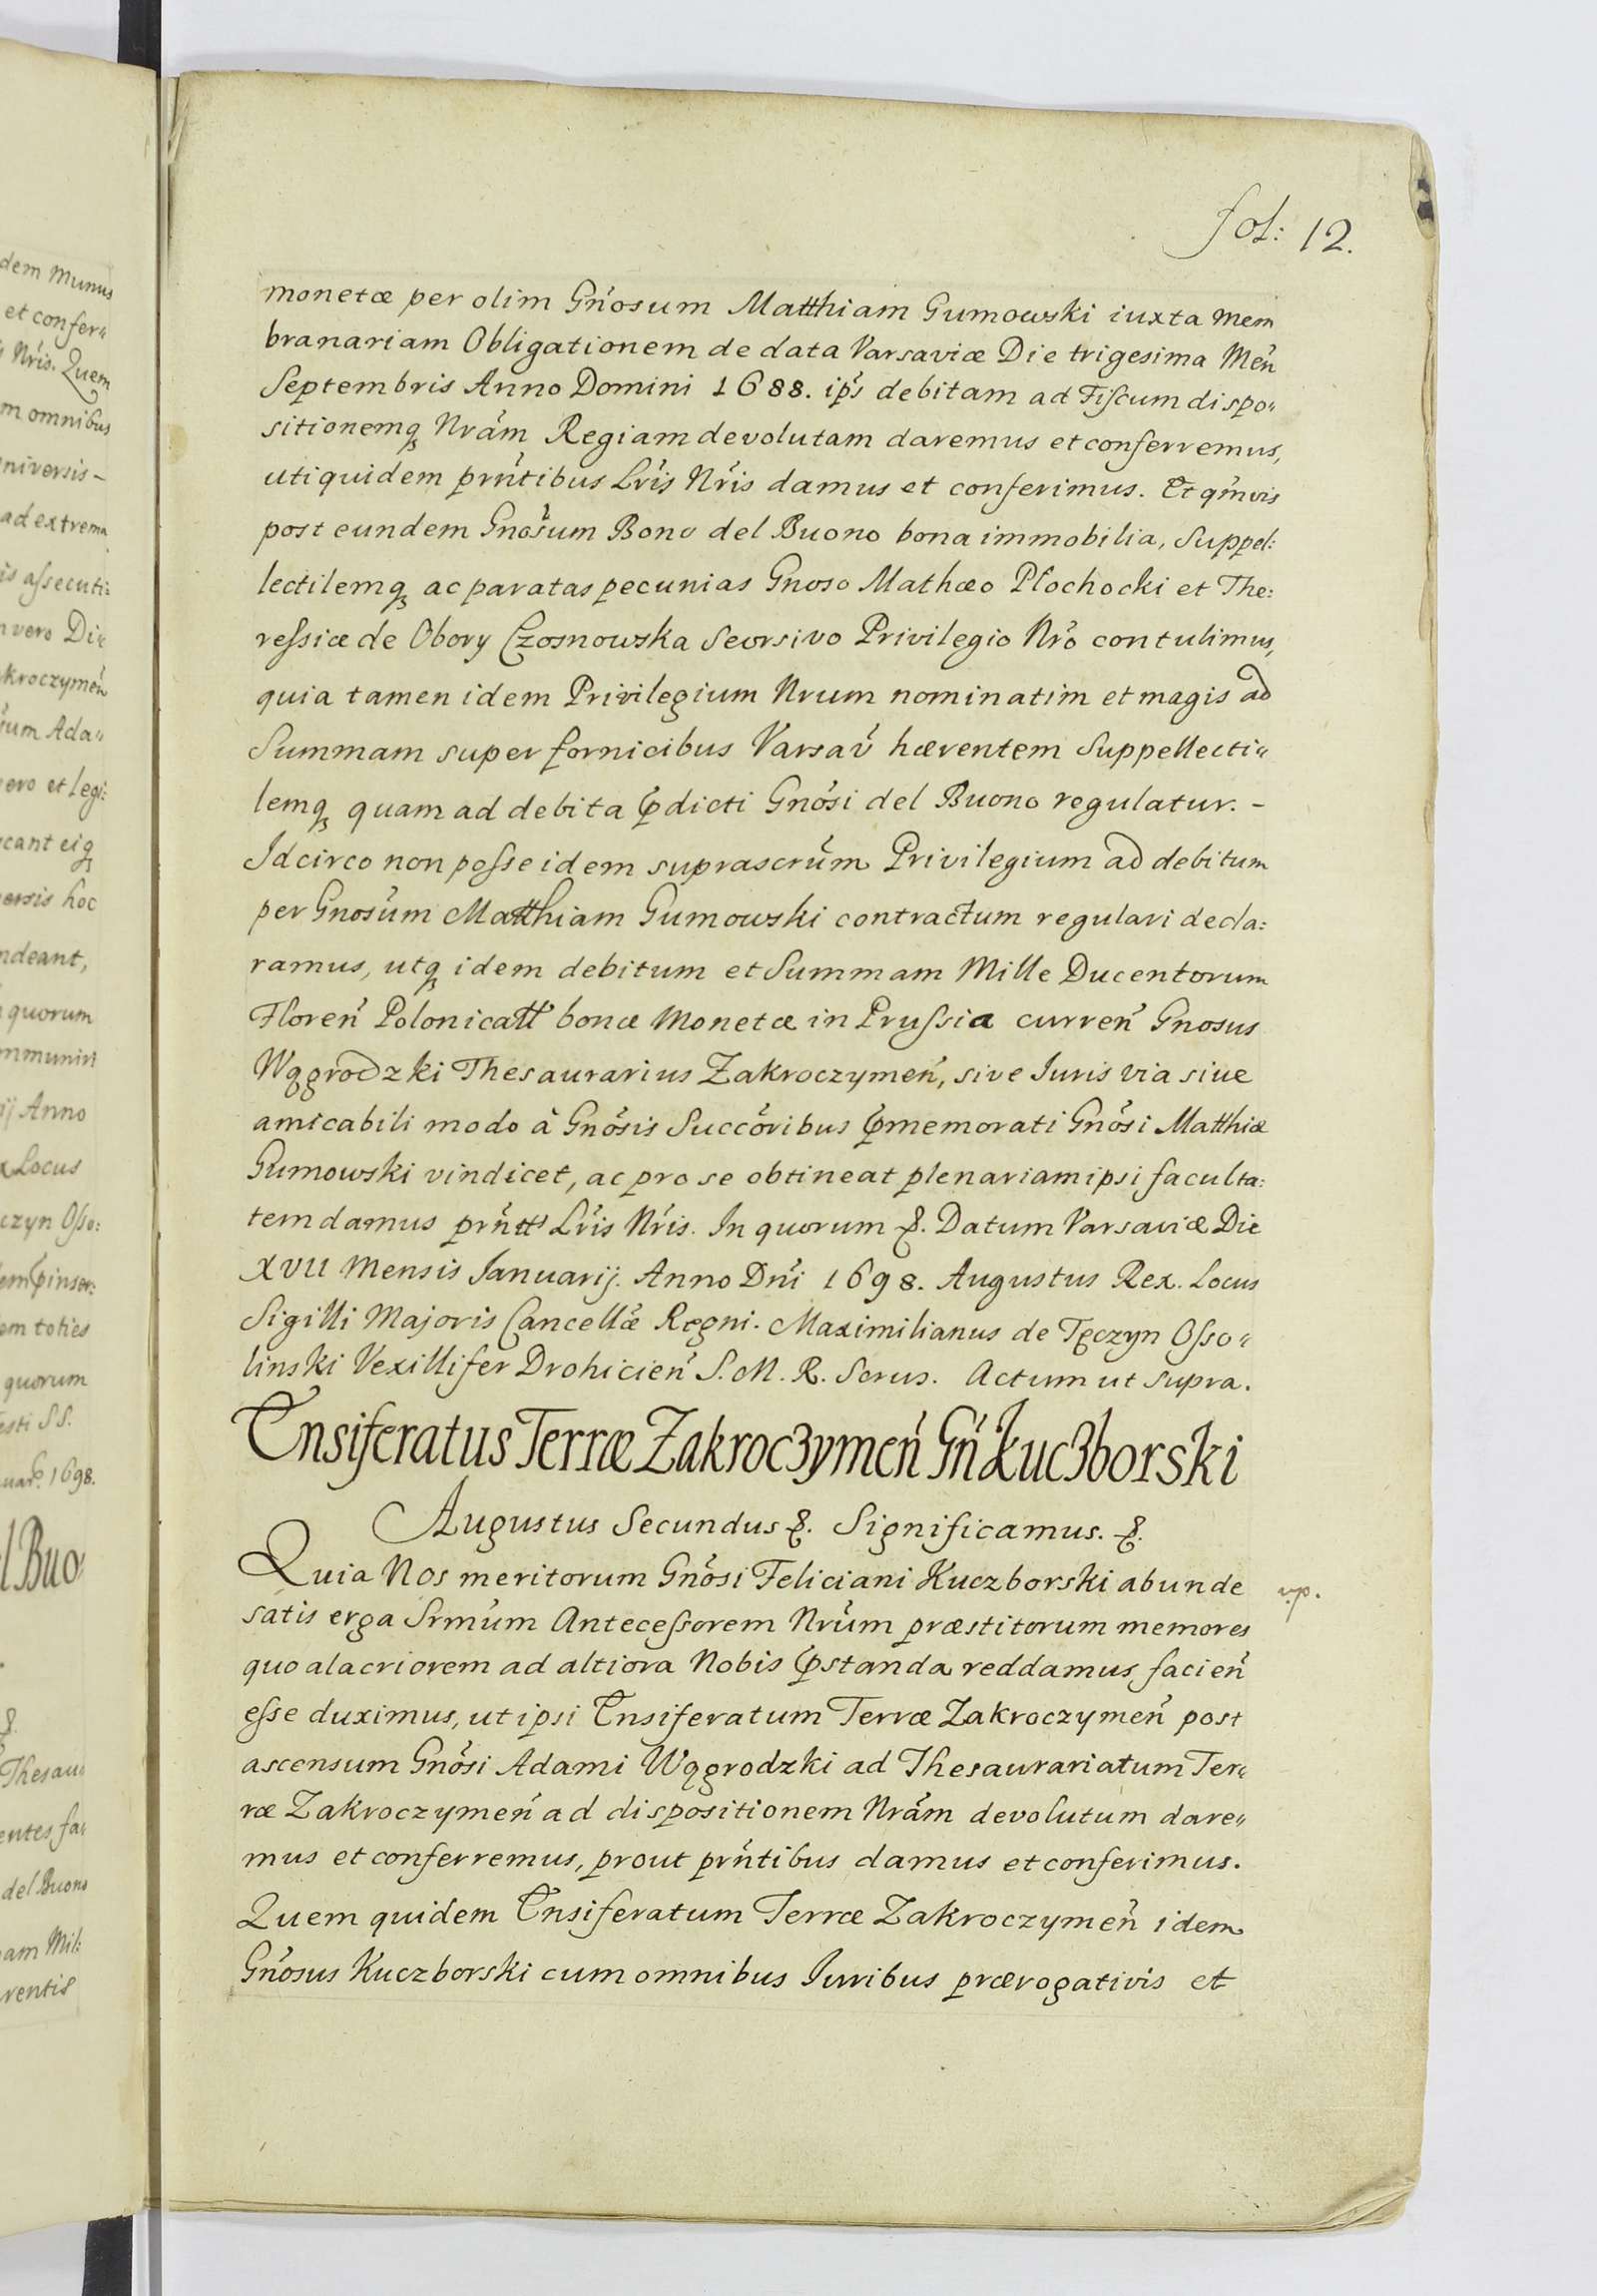 fol: 12.
monetæ per olim Gn̄osum Matthiam Gumowski iuxta Mem
branariam Obligationem de data Varsaviæ Die trigesima Men̄
Septembris Anno Domini 1688. ip̄s debitam ad Fiſcum dispo„
sitionemq₃ Nrām Regiam devolutam daremus et conferremus,
uti quidem prn̄tibus Lr̄is Nr̄is damus et conferimus. Et qm̄vis
post eundem Gnōsum Bono del Buono bona immobilia, Suppel:
lectilemq₃ ac paratas pecunias Gnoso Mathæo Płochocki et The:
reſsiæ de Obory Czosnowska Seorsivo Privilegio Nrō contulimus,
quia tamen idem Privilegium Nrum nominatim et magis ad
Summam super fornicibus Varsav̄ hærentem Suppellecti„
lemq₃ quam ad debita p̄dicti Gnōsi del Buono regulatur. –
Idcirco non poſse idem suprascrūm Privilegium ad debitum
per Gnosūm Matthiam Gumowski contractum regulari decla:
ramus, utq₃ idem debitum et Summam Mille Ducentorum
Floren̄ Polonicall̄ bonæ Monetæ in Pruſsia curren̄ Gnosus
Wągrodzki Thesaurarius Zakroczymen̄, sive Iuris via siue
amicabili modo à Gnōsis Succōribus p̄memorati Gnōsi Matthiæ
Gumowski vindicet, ac pro se obtineat plenariam ipsi faculta:
tem damus prn̄tt̄ Lr̄is Nr̄is. In quorum &. Datum Varsaviæ Die
XVII Mensis Ianuarij. Anno Dn̄i 1698. Augustus Rex. Locus
Sigilli Majoris Cancellǣ Regni. Maximilianus de Tęczyn Oſso„
linski Vexillifer Drohicien̄ S. M. R. Scrus. Actum ut supra.
Ensiferatus Terræ Zakroczymen̄ Gn̄ Kuczborski
Augustus Secundus &. Significamus. &.
Quia Nos meritorum Gnōsi Feliciani Kuczborski abunde
v.p.
satis erga Srmūm Anteceſsorem Nrūm præstitorum memores
quo alacriorem ad altiora Nobis p̄standa reddamus facien̄
eſse duximus, ut ipsi Ensiferatum Terræ Zakroczymen̄ post
ascensum Gnōsi Adami Wągrodzki ad Thesaurariatum Ter„
ræ Zakroczymen̄ ad dispositionem Nrām devolutum dare„
mus et conferremus, prout prn̄tibus damus et conferimus.
Quem quidem Ensiferatum Terræ Zakroczymen̄ idem
Gnōsus Kuczborski cum omnibus Iuribus prærogativis et